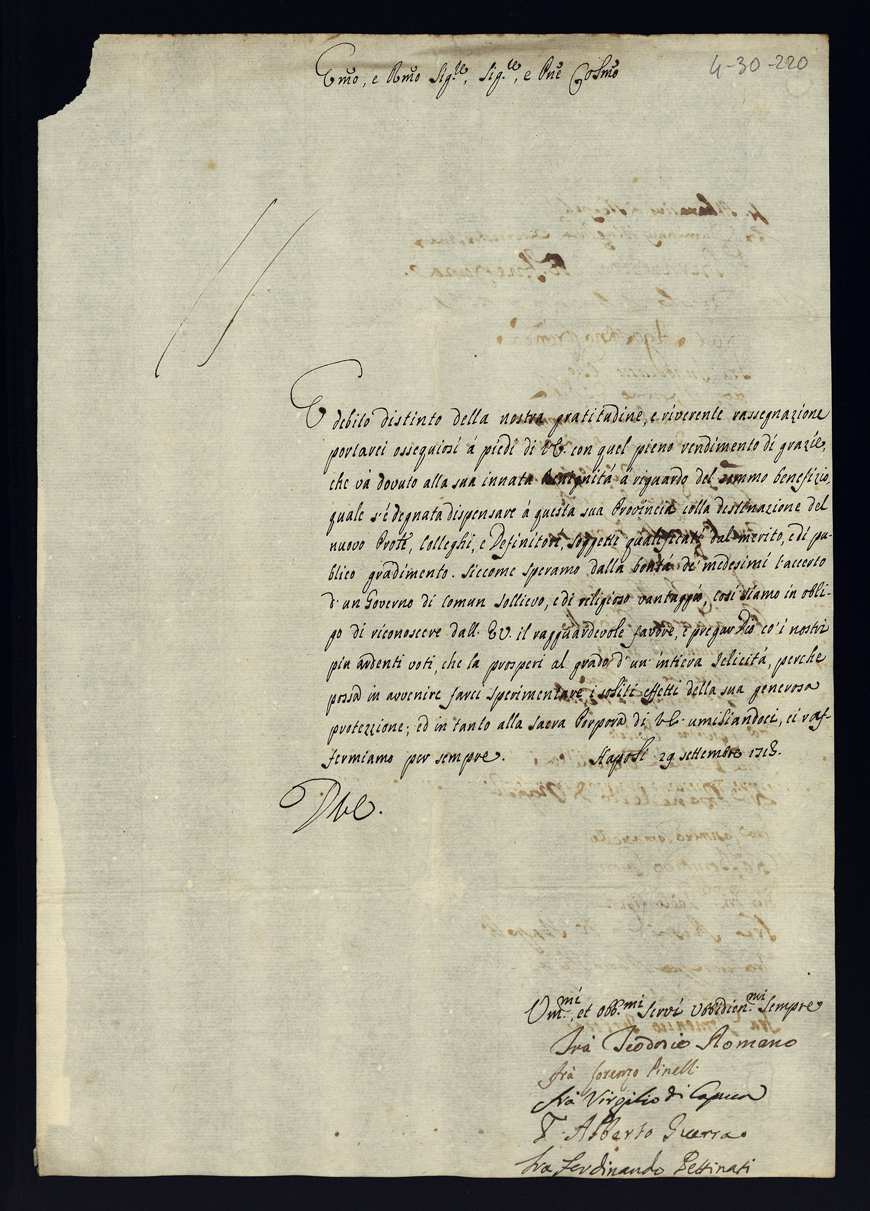 4-30-220
Emo, e Rmo Sig.re, Sig.re, e Pne Colmo
È debito distinto della nostra gratitudine, e riverente rassegnazione
portarci ossequiosi á piedi di VE. con quel pieno rendimento di grazie,
che và dovuto alla sua innata benignitá á riguardo del sommo benefizio,
quale s'é degnata dispensare á questa sua Provincia colla destinazione del
nuovo Prote, Colleghi, e Definitore, soggetti qualificati dal merito, e di pu-
blico gradimento. Siccome speramo dalla bontá de' medesimi l'accerto
d'un Governo di comun sollievo, e di religioso vantaggio, cosí siamo in obli-
go di riconoscere dall' EV. il ragguardevole favore, e pregar Dio co' i nostri
piu ardenti voti, che la prosperi al grado d'un' intiera felicitá, perche
possa in avvenire farci sperimentare i soliti effetti della sua generosa
protezzione; ed in tanto alla sacra Porpora di VE. umiliandoci, ci raf-
fermiamo per sempre. Napoli 29 settembre 1718.
D VE.
Um.mi, et obb.mi servi obbidien.mi sempre
Frà Teodosio Romano
frà Lorenzo Pinelli
frà Virgilio di Capua
F. Alberto Guerra
fra Ferdinando Pettinati